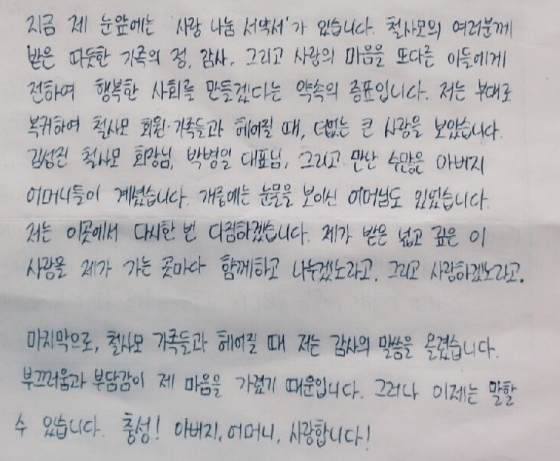 지금 제 눈앞에는 '사랑 나눔 서약서'가 있습니다. 철사모의 여러분께
받은 따듯한 가족의 정, 감사, 그리고 사랑의 마음을 또다른 이들에게
전하여 행복한 사회를 만들겠다는 약속의 증표입니다. 저는 부대로
복귀하여 철사모 회원·가족들과 헤어질 때, 더없는 큰 사랑을 보았습니다.
김성진 철사모 회장님, 박병일 대표님, 그리고 만난 수많은 아버지
어머니들이 계셨습니다. 개중에는 눈물을 보이신 어머님도 있었습니다.
저는 이곳에서 다시한 번 다짐하겠습니다. 제가 받은 넓고 깊은 이
사랑을 제가 가는 곳마다 함께하고 나누겠노라고. 그리고 사랑하겠노라고.
마지막으로, 철사모 가족들과 헤어질 때 저는 감사의 말씀을 올렸습니다.
부끄러움과 부담감이 제 마음을 가렸기 때문입니다. 그러나 이제는 말할
수 있습니다. 충성! 아버지, 어머니, 사랑합니다!